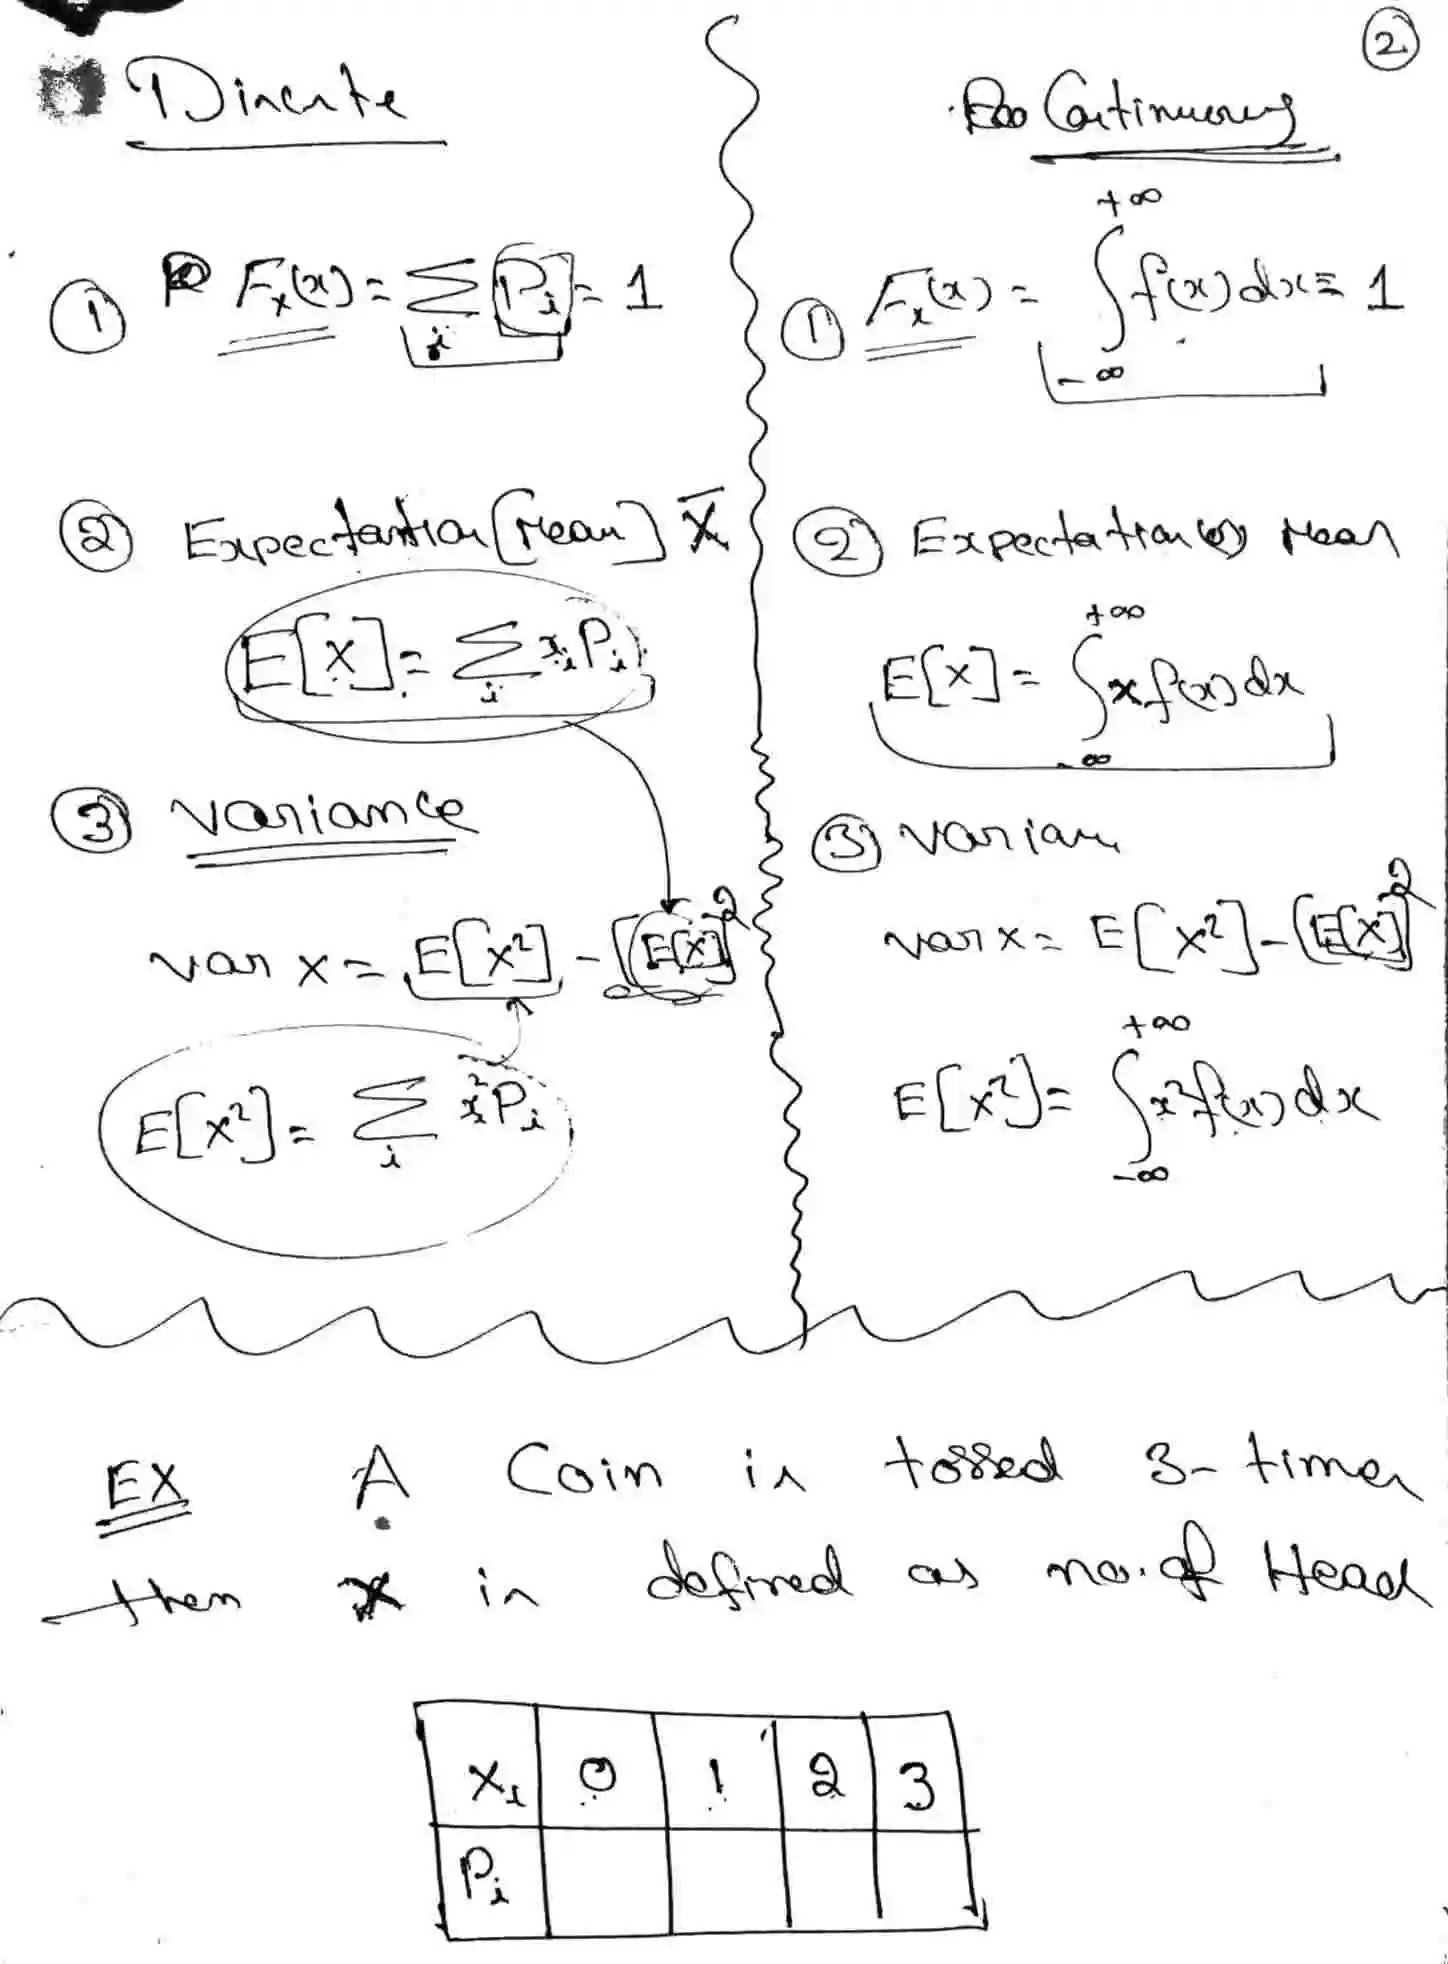 ②
Discrete
① F_x(x) = Σ_i P_i = 1
② Expectation [Mean] X̄
E[X] = Σ_i x_i P_i
③ Variance
var x = E[X²] - [E[X]]²
E[X²] = Σ_i x_i² P_i
Continuous
① F_x(x) = ∫_{-∞}^{+∞} f(x) dx = 1
② Expectation (or) Mean
E[X] = ∫_{-∞}^{+∞} x f(x) dx
③ Varian
var x = E[X²] - [E[X]]²
E[X²] = ∫_{-∞}^{+∞} x² f(x) dx
EX A Coin is tossed 3-times
then X is defined as no. of Head
X_i 0 1 2 3
P_i